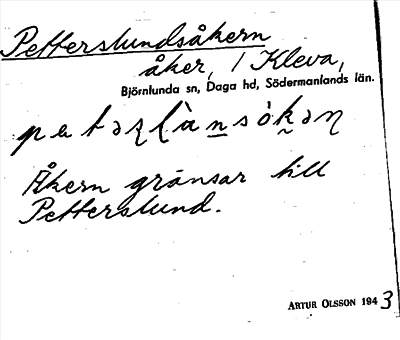 Petterslundsåkern
åker, / Kleva,
Björnlunda sn, Daga hd, Södermanlands län.
Åkern gränsar till
Petterslund.
ARTUR OLSSON 1943